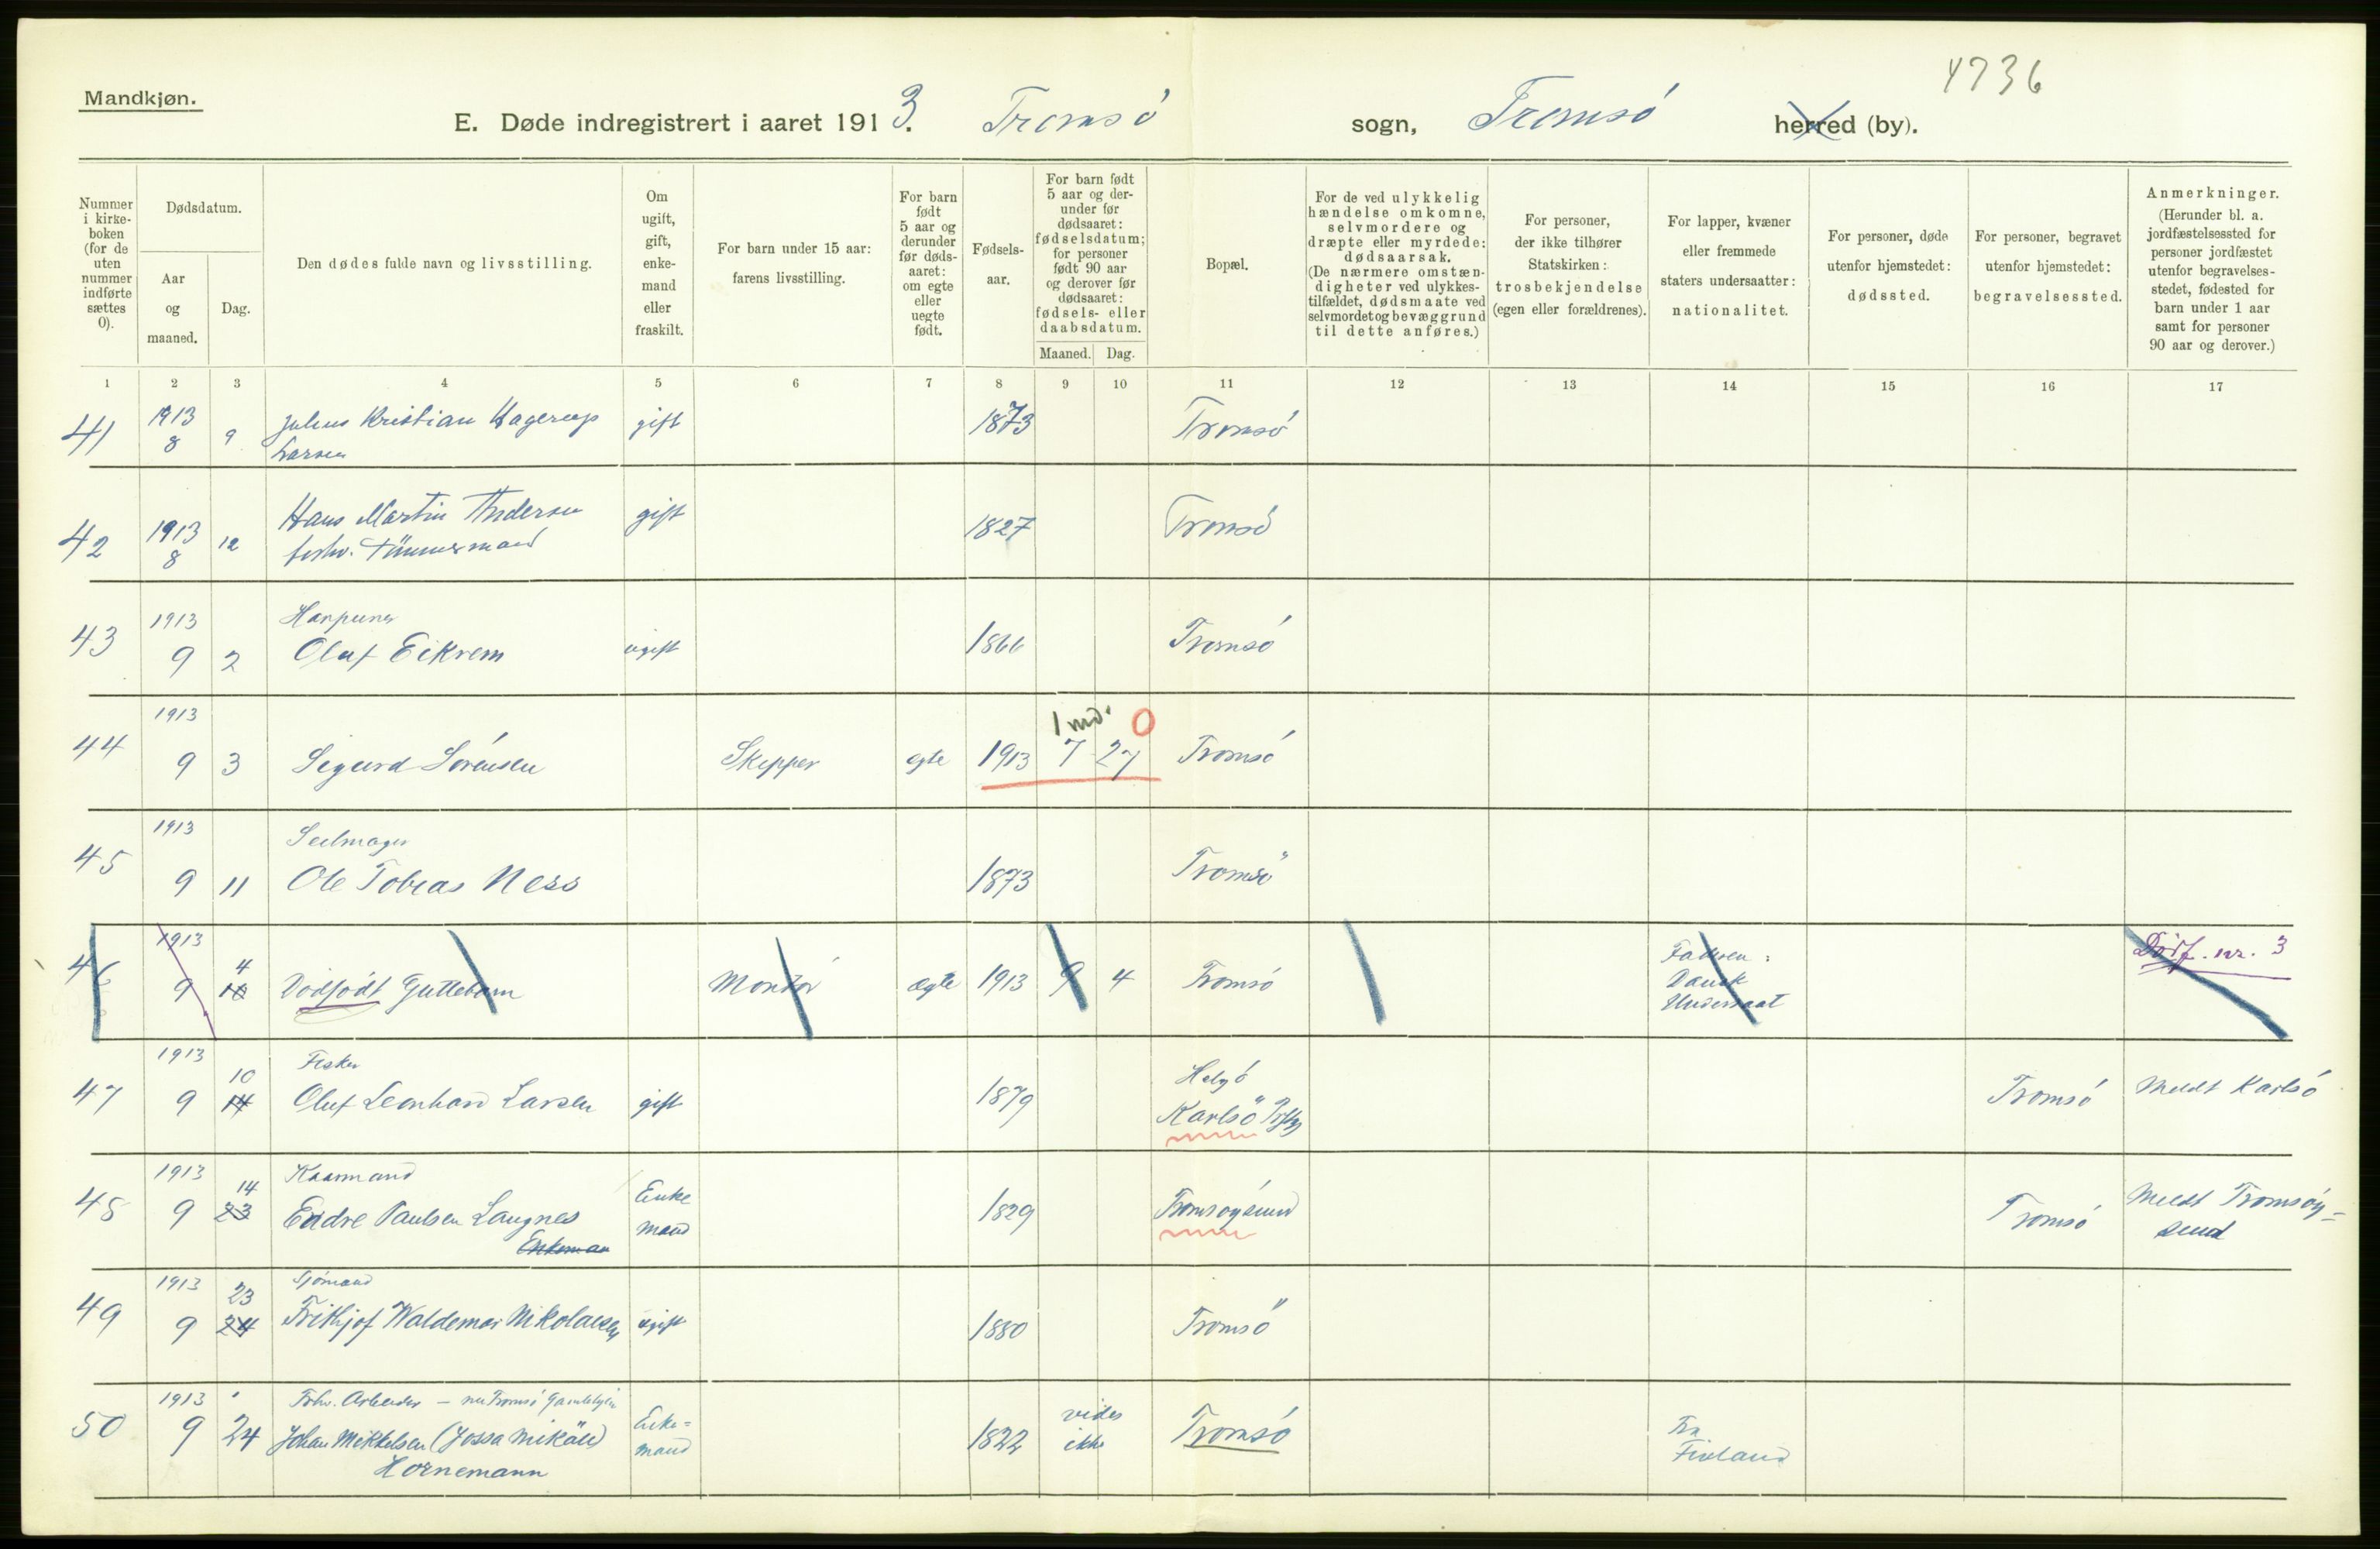 4736
Mandkjøn.
E. Døde indregistrert i aaret 1913. Tromsö sogn, Tromsö herred (by).
Nummer i kirkeboken (for de uten nummer indførte sættes 0).
Dødsdatum.
Aar og maaned.
Dag.
Den dødes fulde navn og livsstilling.
Om ugift, gift, enkemand eller fraskilt.
For barn under 15 aar: farens livsstilling.
For barn født 5 aar og derunder før dødsaaret: om egte eller uegte født.
Fødselsaar.
For barn født 5 aar og derunder før dødsaaret: fødselsdatum; for personer født 90 aar og derover før dødsaaret: fødsels- eller daabsdatum.
Maaned. Dag.
Bopæl.
For de ved ulykkelig hændelse omkomne, selvmordere og dræpte eller myrdede: dødsaarsak. (De nærmere omstændigheter ved ulykkestilfældet, dødsmaate ved selvmordet og bevæggrund til dette anføres.)
For personer, der ikke tilhører Statskirken: trosbekjendelse (egen eller forældrenes).
For lapper, kvæner eller fremmede staters undersaatter: nationalitet.
For personer, døde utenfor hjemstedet: dødssted.
For personer, begravet utenfor hjemstedet: begravelsessted.
Anmerkninger. (Herunder bl. a. jordfæstelsessted for personer jordfæstet utenfor begravelsesstedet, fødested for barn under 1 aar samt for personer 90 aar og derover.)
1 2 3 4 5 6 7 8 9 10 11 12 13 14 15 16 17
41 1913 8 9 Julius Kristian Hagerup Larsen gift 1873 Tromsö
42 1913 8 12 Hans Martin Andersen forhv. Tömmermand gift 1827 Tromsö
43 1913 9 2 Harpuner Oluf Eikrem ugift 1866 Tromsö
1 md. 0
44 1913 9 3 Sigurd Sörensen Skipper egte 1913 7 27 Tromsö
45 1913 9 11 Seilmager Ole Tobias Ness 1873 Tromsö
46 1913 9 4 10 Dödfödt Guttebarn Montör ægte 1913 9 4 Tromsö Faderen: Dansk Undersaat Dödf. nr. 3
47 1913 9 10 14 Fisker Oluf Leonhard Larsen gift 1879 Helgö Karlsö Tromsö Meldt Karlsö
48 1913 9 14 23 Kaarmand Endre Paulsen Langnes Enkeman Enke mand 1829 Tromsöysund Tromsö Meldt Tromsöy=
sund
49 1913 9 23 24 Sjömand Frithjof Waldemar Nikolaisen ugift 1880 Tromsö
50 1913 9 24 Forhv. Arbeider — Johan Mikkelsen (Jossa Mikäli) Hornemann Enke= mand 1822 vides ikke Tromsö Fra Finland